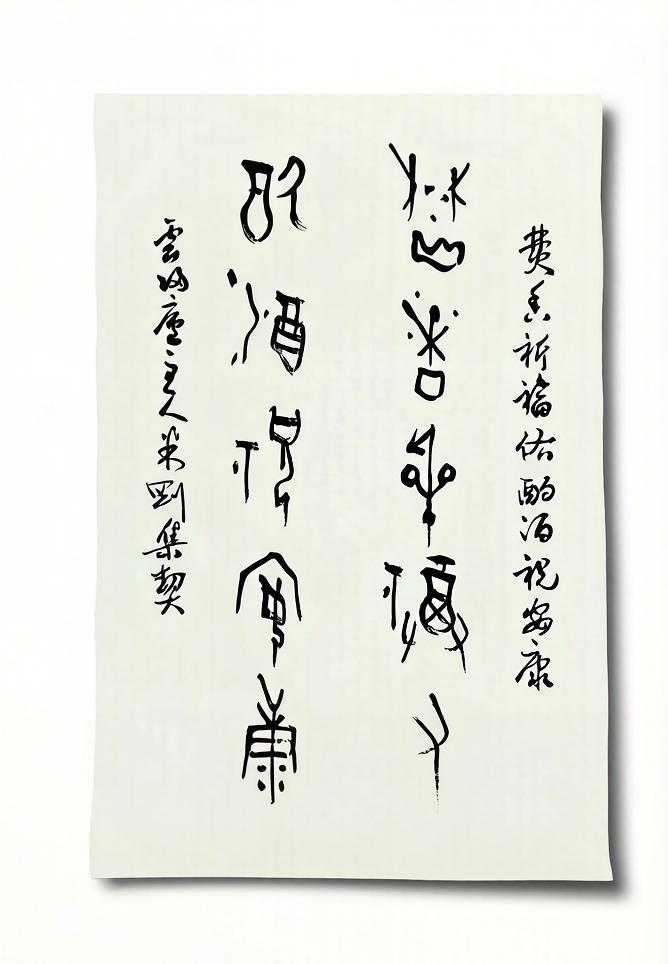 焚香祈福佑酌酒祝安康
焚香祈福佑
酌酒祝安康
雲廬主人米剛集契